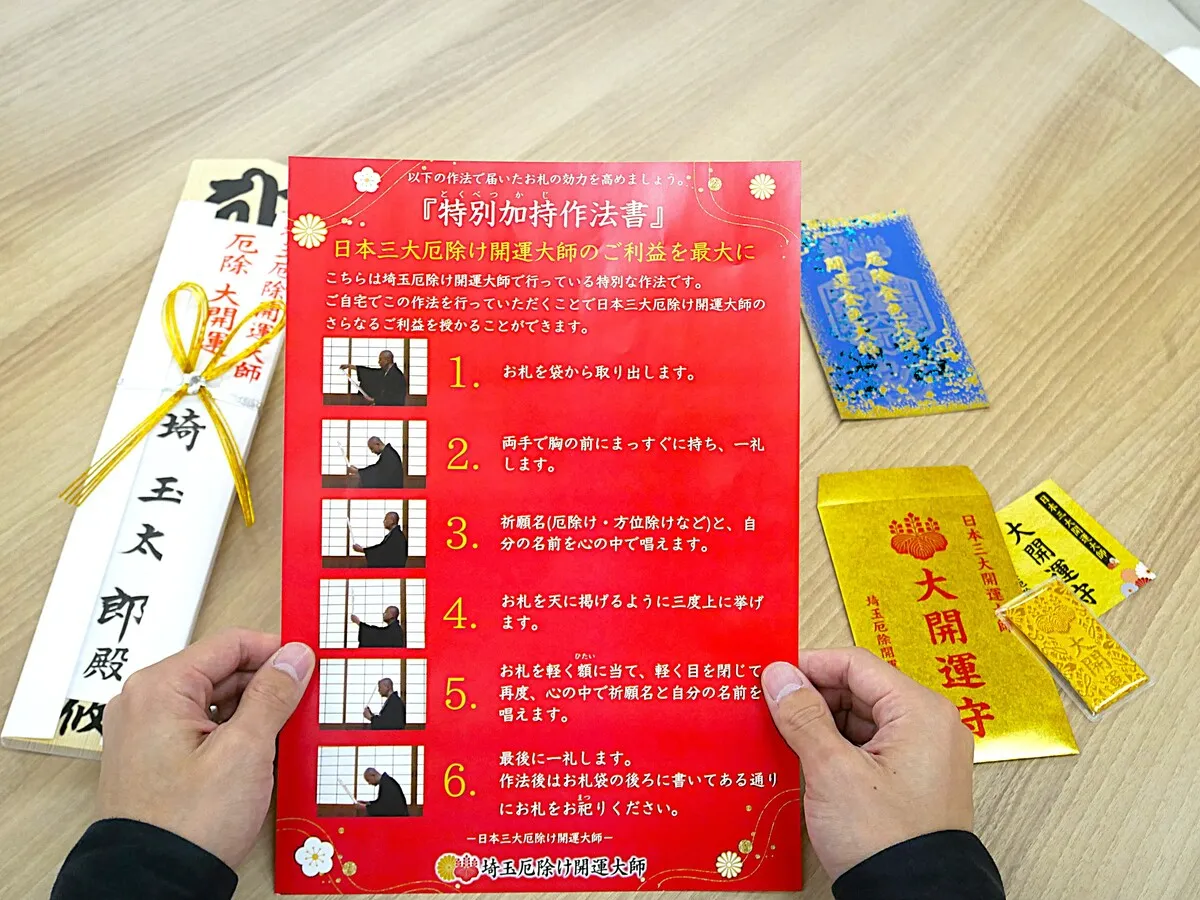 厄除 大開運
厄除け開運大師
埼玉太郎殿
以下の作法で届いたお札の効力を高めましょう。
とくべつかじ
『特別加持作法書』
日本三大厄除け開運大師のご利益を最大に
こちらは埼玉厄除け開運大師で行っている特別な作法です。
ご自宅でこの作法を行っていただくことで日本三大厄除け開運大師の
さらなるご利益を授かることができます。
1. お札を袋から取り出します。
2. 両手で胸の前にまっすぐに持ち、一礼
します。
3. 祈願名(厄除け・方位除けなど)と、自
分の名前を心の中で唱えます。
4. お札を天に掲げるように三度上に挙げ
ます。
ひたい
5. お札を軽く額に当て、軽く目を閉じて
再度、心の中で祈願名と自分の名前を
唱えます。
6. 最後に一礼します。
作法後はお札袋の後ろに書いてある通り
まつ
にお札をお祀りください。
ー日本三大厄除け開運大師ー
埼玉厄除け開運大師
日本三大開運
大開運守
埼玉厄除開運
日本三大開運大師
大開運守
大開